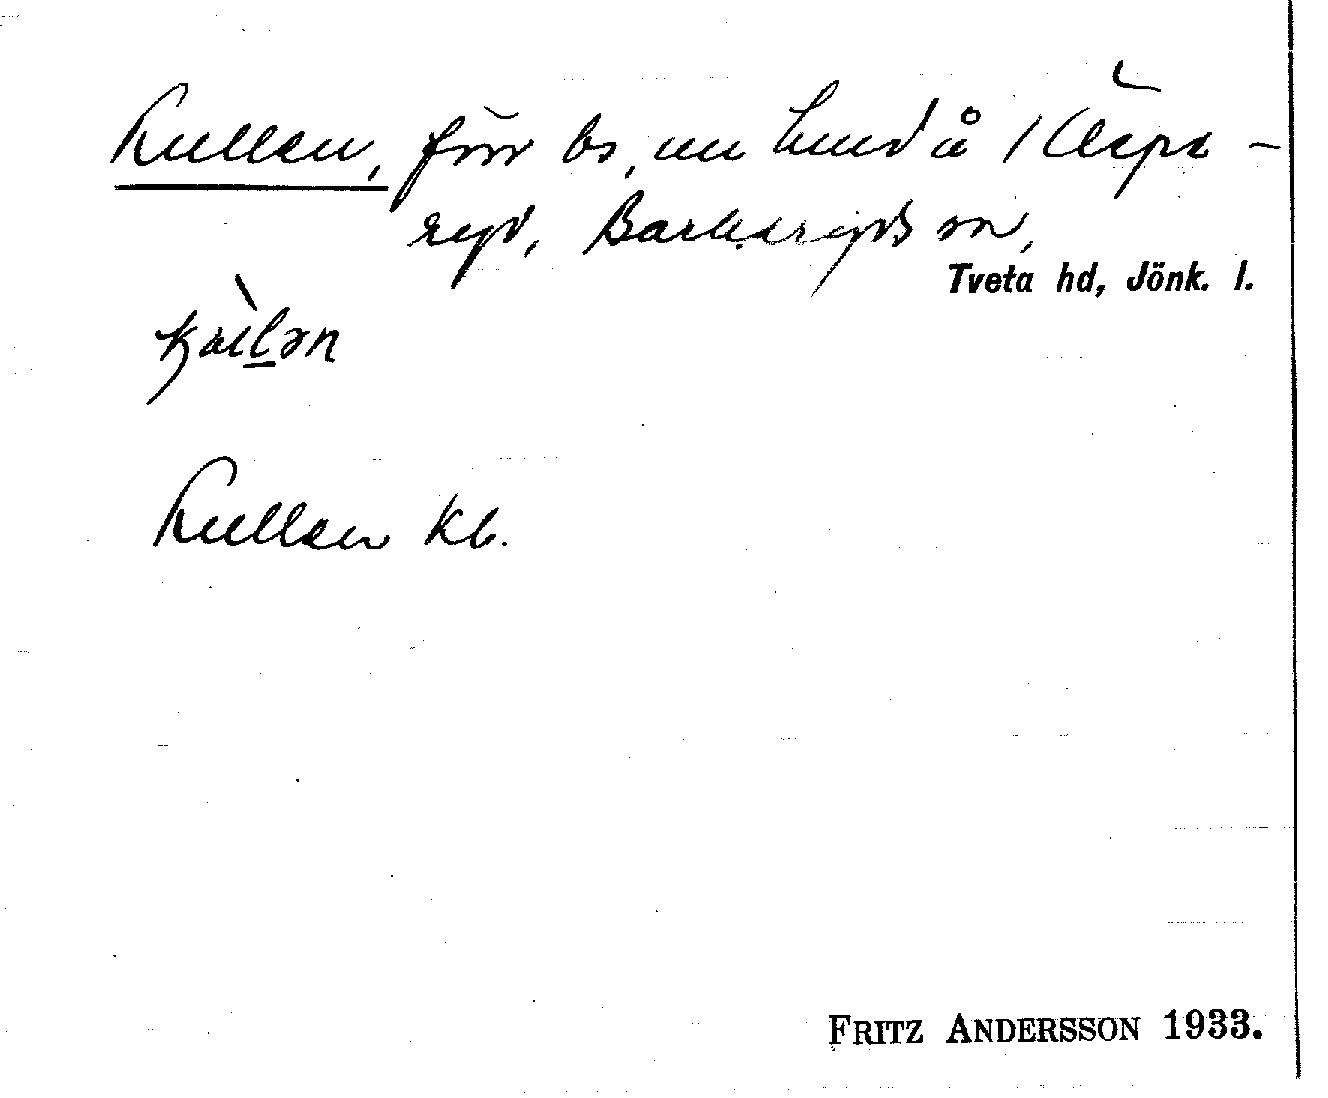 Kullen, förr bs, nu hmd å / Kläpe-
ryd, Barkeryds sn,
Tveta hd, Jönk. l.
Kullen kb.
FRITZ ANDERSSON 1933.